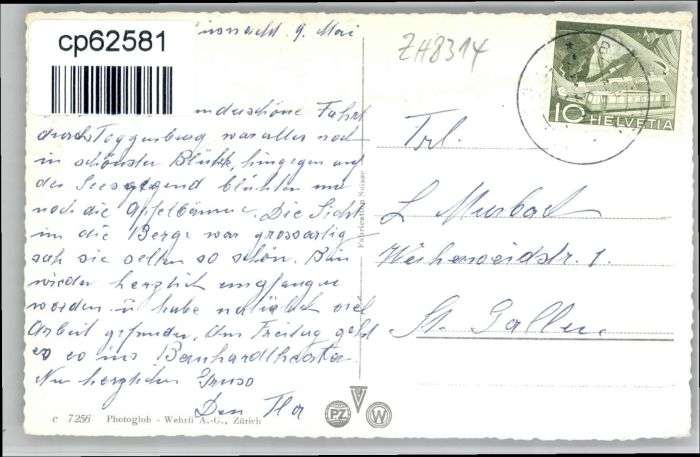 cp62581
9. Mai
ZH8314
10 HELVETIA
wunderschöne Fahrt
durchs Toggenburg war alles noch
in schönster Blüte, hingegen auf
der Seegegend blühten nur
noch die Apfelbäume. Die Sicht
in die Berge war grossartig
sah sie selten so schön. Bin
wieder herzlich empfangen
worden u. habe natürlich viel
Arbeit gefunden. Am Freitag geht
es ins Bernhardtheater
Nur herzlichen Gruss
Frl.
L. Murbach
Weiherweidstr. 1.
St. Gallen
Fabrication Suisse
c 7256 Photoglob - Wehrli A.-G., Zürich
PZ W